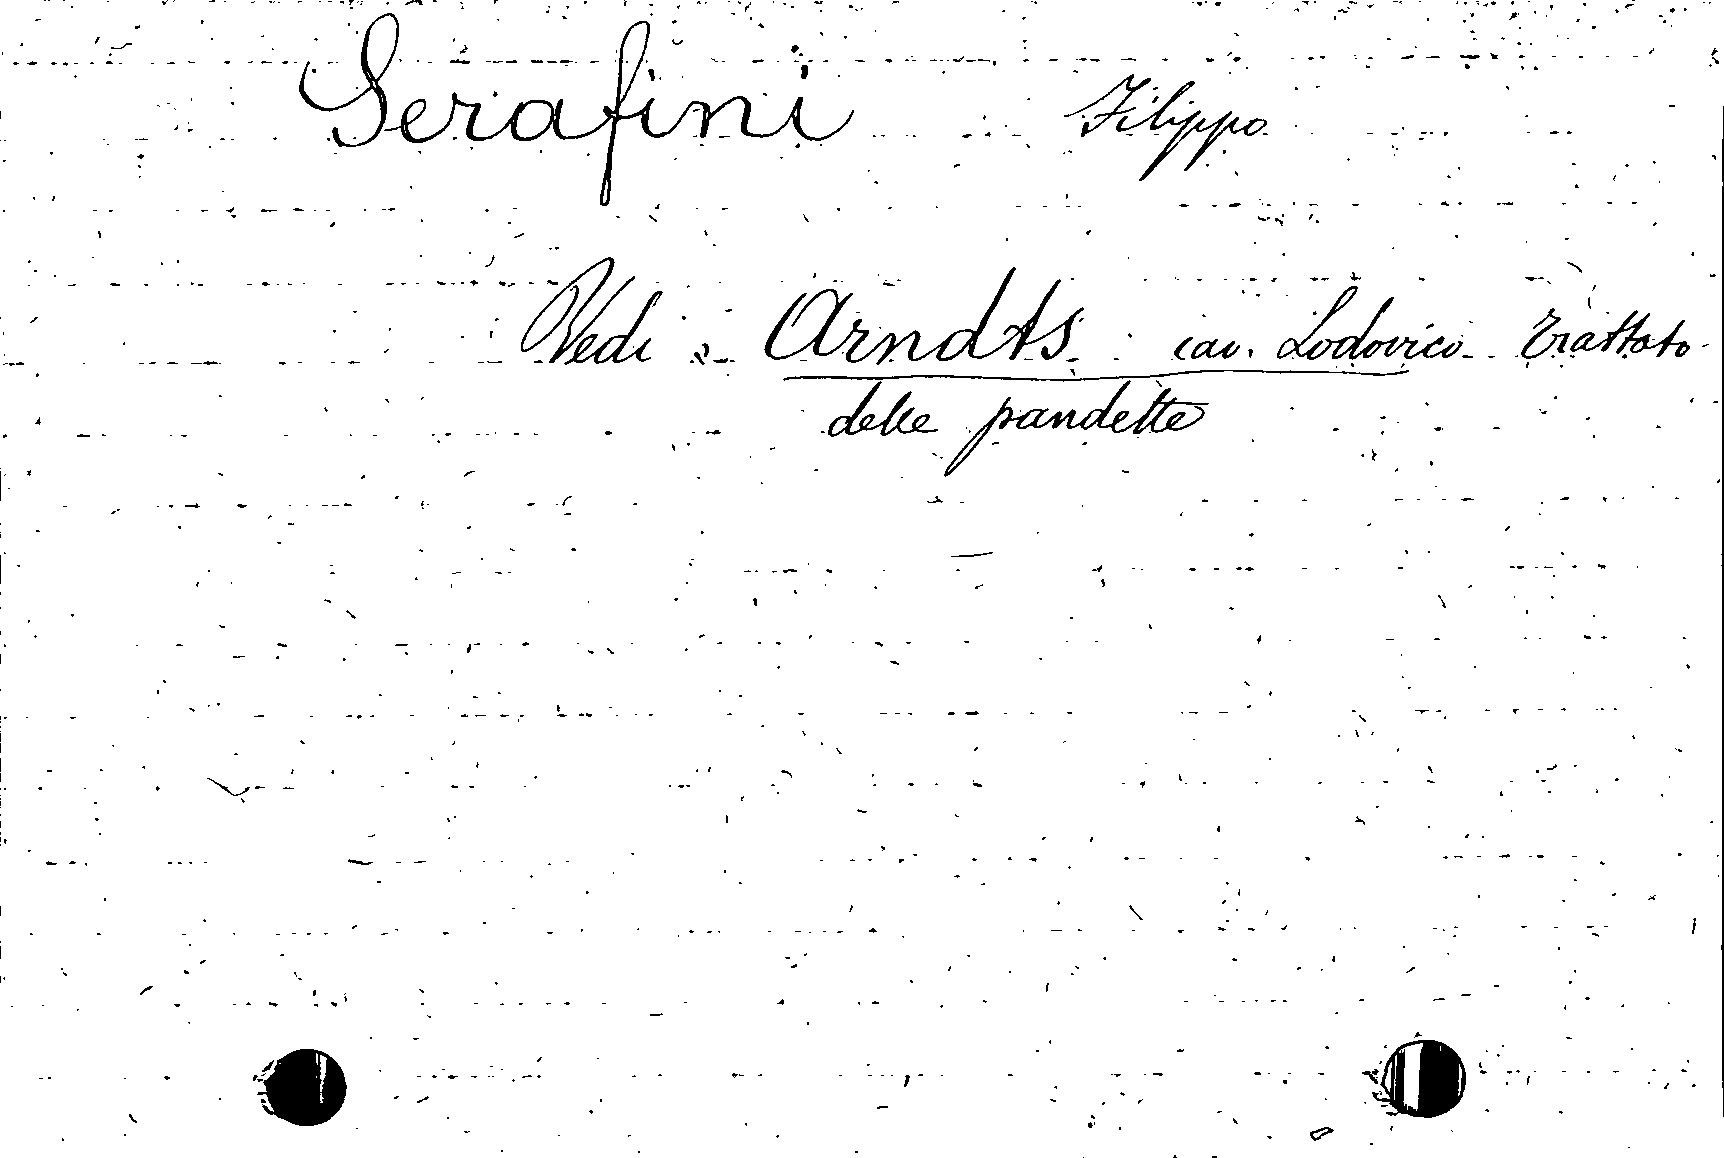 Serafini Filippo
Vedi : Arndts cav. Lodovico Trattato
delle pandette